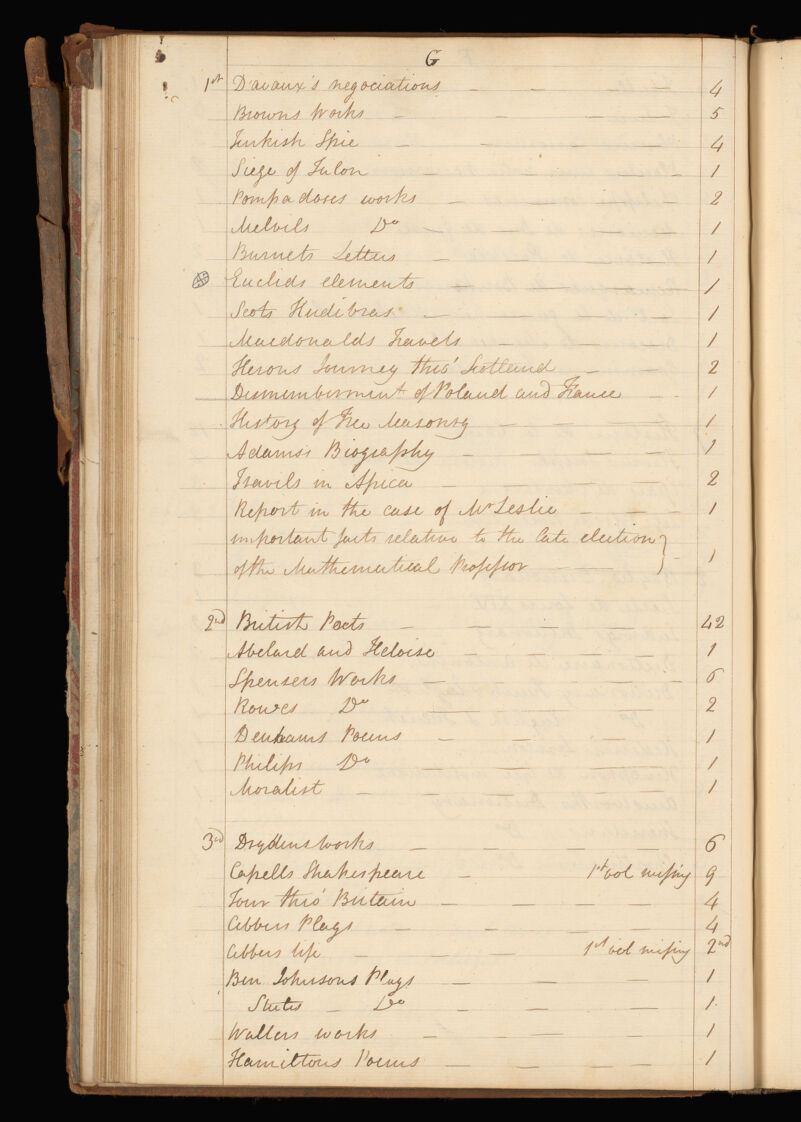 G
1st D'avaux's negociations 4
Browns Works 5
Turkish Spie 4
Siege of Tulon 1
Pompadores works 2
Melvils Do 1
Burnets Letters 1
Euclids elements 1
Scots Hudibras 1
Macdonalds Travels 1
Herons Journey thro' Scotland 2
Dismemberment of Poland and France 1
History of Free Masonry 1
Adams's Biography 1
Travels in Africa 2
Report in the case of Mr Leslie 1
important facts relative to the late election }
of the Mathematical Professor 1
2nd British Poets 42
Abelard and Heloise 1
Spensers Works 6
Rowes Do 2
Denhams Poems 1
Philips Do 1
Moralist 1
3rd Drydens works 6
Capells Shakespeare 1st vol missing 9
Tour thro' Britain 4
Cibbers Plays 4
Cibbers life 1st vol missing 2nd
Ben Johnsons Plays 1
Do 1
Wallers works 1
Hamiltons Poems 1